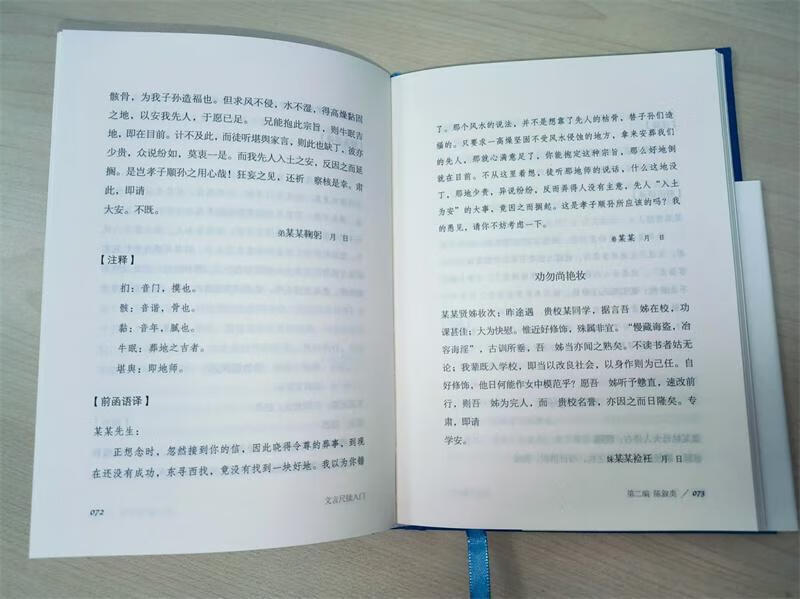 骸骨，为我子孙造福也。但求风不侵，水不湿，得高燥黏固
之地，以安我先人，于愿已足。 兄能抱此宗旨，则牛眠吉
地，即在目前。计不及此，而徒听堪舆家言，则此也缺丁，彼亦
少贵，众说纷如，莫衷一是。而我先人入土之安，反因之而延
搁。是岂孝子顺孙之用心哉！狂妄之见，还祈 察核是幸。肃
此，即请
大安。不既。
弟某某鞠躬 月 日
【注释】
扪：音门，摸也。
骸：音谐，骨也。
黏：音年，腻也。
牛眠：葬地之吉者。
堪舆：即地师。
【前函语译】
某某先生：
正想念时，忽然接到你的信，因此晓得令尊的葬事，到现
在还没有成功，东寻西找，竟没有找到一块好地。我以为你错
072
文言尺牍入门
了。那个风水的说法，并不是想靠了先人的枯骨，替子孙们造
福的。只要求一高燥坚固不受风水侵蚀的地方，拿来安葬我们
的先人，那就心满意足了，你能抱定这种宗旨，那么好地倒
就在目前。不从这里着想，徒听那地师的说话，什么这地没
丁，那地少贵，异说纷纷，反而弄得人没有主意，先人“入土
为安”的大事，竟因之而搁起。这是孝子顺孙所应该的吗？我
的愚见，请你不妨考虑一下。
弟某某 月 日
劝勿尚艳妆
某某贤姊妆次：昨途遇 贵校某同学，据言吾 姊在校，功
课甚佳；大为快慰。惟近好修饰，殊属非宜。“慢藏海盗，冶
容海淫”，古训所垂，吾 姊当亦闻之熟矣。不读书者姑无
论；我辈既入学校，即当以改良社会，以身作则为己任。自
好修饰，他日何能作女中模范乎？愿吾 姊听予戆直，速改前
行，则吾 姊为完人，而 贵校名誉，亦因之而日隆矣。专
肃，即请
学安。
妹某某裣衽 月 日
第二编 陈叙类 / 073